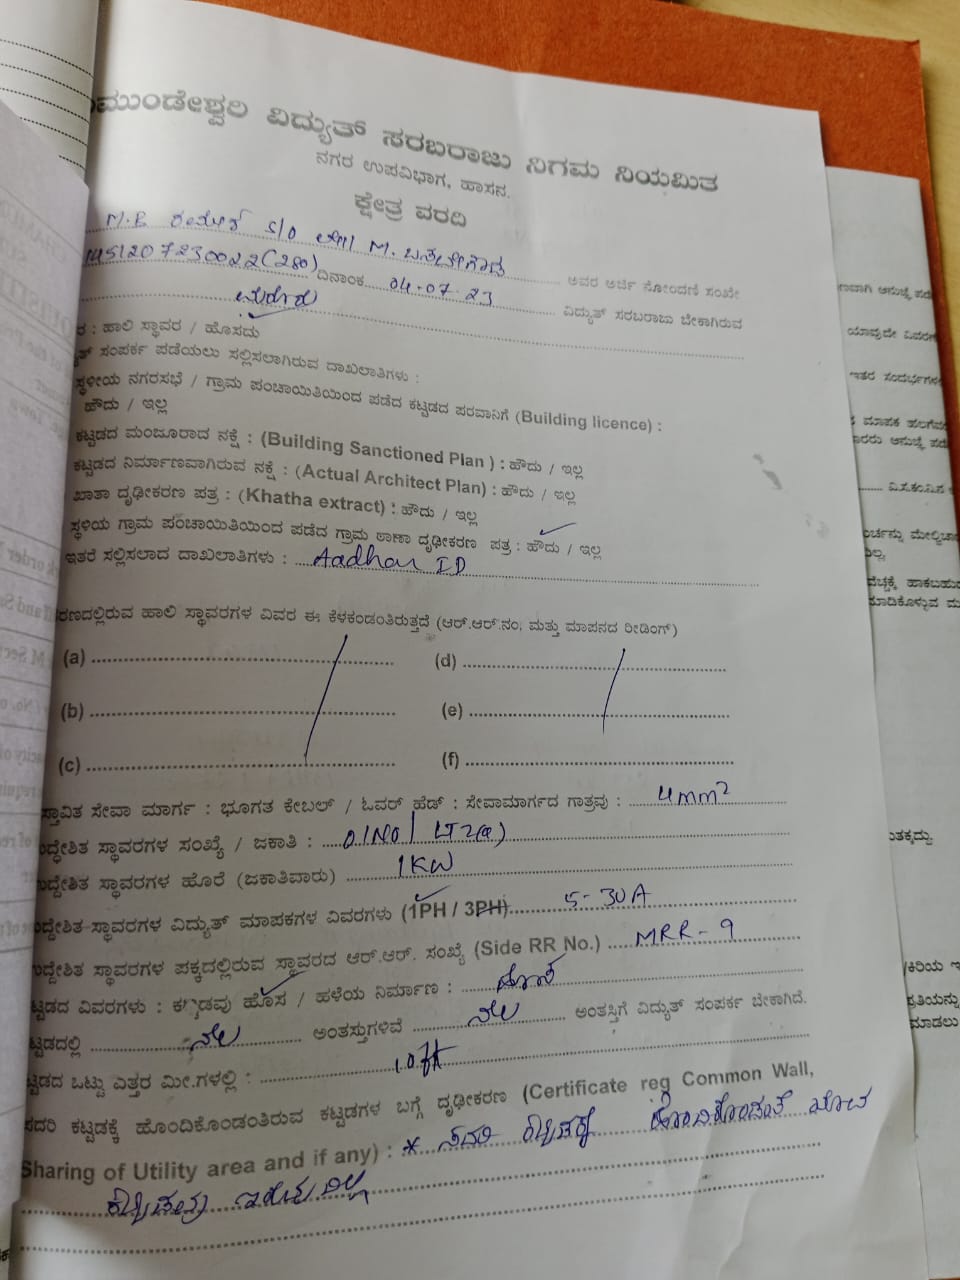 ಮುಂಡೇಶ್ವರಿ ವಿದ್ಯುತ್ ಸರಬರಾಜು ನಿಗಮ ನಿಯಮಿತ
ನಗರ ಉಪವಿಭಾಗ, ಹಾಸನ.
ಕ್ಷೇತ್ರ ವರದಿ
M.B S/o M. ಅವರ ಅರ್ಜಿ ನೋಂದಣಿ ಸಂಖೇ
1451207230022(280) ದಿನಾಂಕ 04-07-23 ವಿದ್ಯುತ್ ಸರಬರಾಜು ಬೇಕಾಗಿರುವ
ರ : ಹಾಲಿ ಸ್ಥಾವರ / ಹೊಸದು
ತ್ ಸಂಪರ್ಕ ಪಡೆಯಲು ಸಲ್ಲಿಸಲಾಗಿರುವ ದಾಖಲಾತಿಗಳು :
ಸ್ಥಳೀಯ ನಗರಸಭೆ / ಗ್ರಾಮ ಪಂಚಾಯಿತಿಯಿಂದ ಪಡೆದ ಕಟ್ಟಡದ ಪರವಾನಿಗೆ (Building licence) :
ಹೌದು / ಇಲ್ಲ
ಕಟ್ಟಡದ ಮಂಜೂರಾದ ನಕ್ಷೆ : (Building Sanctioned Plan ) : ಹೌದು / ಇಲ್ಲ
ಕಟ್ಟಡದ ನಿರ್ಮಾಣವಾಗಿರುವ ನಕ್ಷೆ : (Actual Architect Plan) : ಹೌದು / ಇಲ್ಲ
ಖಾತಾ ದೃಢೀಕರಣ ಪತ್ರ : (Khatha extract) : ಹೌದು / ಇಲ್ಲ
ಸ್ಥಳಿಯ ಗ್ರಾಮ ಪಂಚಾಯಿತಿಯಿಂದ ಪಡೆದ ಗ್ರಾಮ ಠಾಣಾ ದೃಢೀಕರಣ ಪತ್ರ : ಹೌದು / ಇಲ್ಲ
ಇತರೆ ಸಲ್ಲಿಸಲಾದ ದಾಖಲಾತಿಗಳು : Aadhar ID
ರಣದಲ್ಲಿರುವ ಹಾಲಿ ಸ್ಥಾವರಗಳ ವಿವರ ಈ ಕೆಳಕಂಡಂತಿರುತ್ತದೆ (ಆರ್.ಆರ್.ನಂ, ಮತ್ತು ಮಾಪನದ ರೀಡಿಂಗ್)
(a) (d)
(b) (e)
(c) (f)
ಸ್ತಾವಿತ ಸೇವಾ ಮಾರ್ಗ : ಭೂಗತ ಕೇಬಲ್ / ಓವರ್ ಹೆಡ್ : ಸೇವಾಮಾರ್ಗದ ಗಾತ್ರವು : 4mm²
ದ್ದೇಶಿತ ಸ್ಥಾವರಗಳ ಸಂಖ್ಯೆ / ಜಕಾತಿ : 01No / LT2(a)
ದ್ದೇಶಿತ ಸ್ಥಾವರಗಳ ಹೊರೆ (ಜಕಾತಿವಾರು) 1KW
ದ್ದೇಶಿತ ಸ್ಥಾವರಗಳ ವಿದ್ಯುತ್ ಮಾಪಕಗಳ ವಿವರಗಳು (1PH / 3PH) 5-30A
ದ್ದೇಶಿತ ಸ್ಥಾವರಗಳ ಪಕ್ಕದಲ್ಲಿರುವ ಸ್ಥಾವರದ ಆರ್.ಆರ್. ಸಂಖ್ಯೆ (Side RR No.) MRR-9
ಟ್ಟಡದ ವಿವರಗಳು : ಕಟ್ಟಡವು ಹೊಸ / ಹಳೆಯ ನಿರ್ಮಾಣ : ಹೊಸ
ಟ್ಟಡದಲ್ಲಿ ನೆಲ ಅಂತಸ್ತುಗಳಿವೆ ನೆಲ ಅಂತಸ್ತಿಗೆ ವಿದ್ಯುತ್ ಸಂಪರ್ಕ ಬೇಕಾಗಿದೆ.
ಟ್ಟಡದ ಒಟ್ಟು ಎತ್ತರ ಮೀ.ಗಳಲ್ಲಿ : 10ft
ಸದರಿ ಕಟ್ಟಡಕ್ಕೆ ಹೊಂದಿಕೊಂಡಂತಿರುವ ಕಟ್ಟಡಗಳ ಬಗ್ಗೆ ದೃಢೀಕರಣ (Certificate reg Common Wall,
Sharing of Utility area and if any) : * ಸದರಿ ಕಟ್ಟಡಕ್ಕೆ ಹೊಂದಿಕೊಂಡಂತೆ
ಕಟ್ಟಡವು ಇರುವುದಿಲ್ಲ